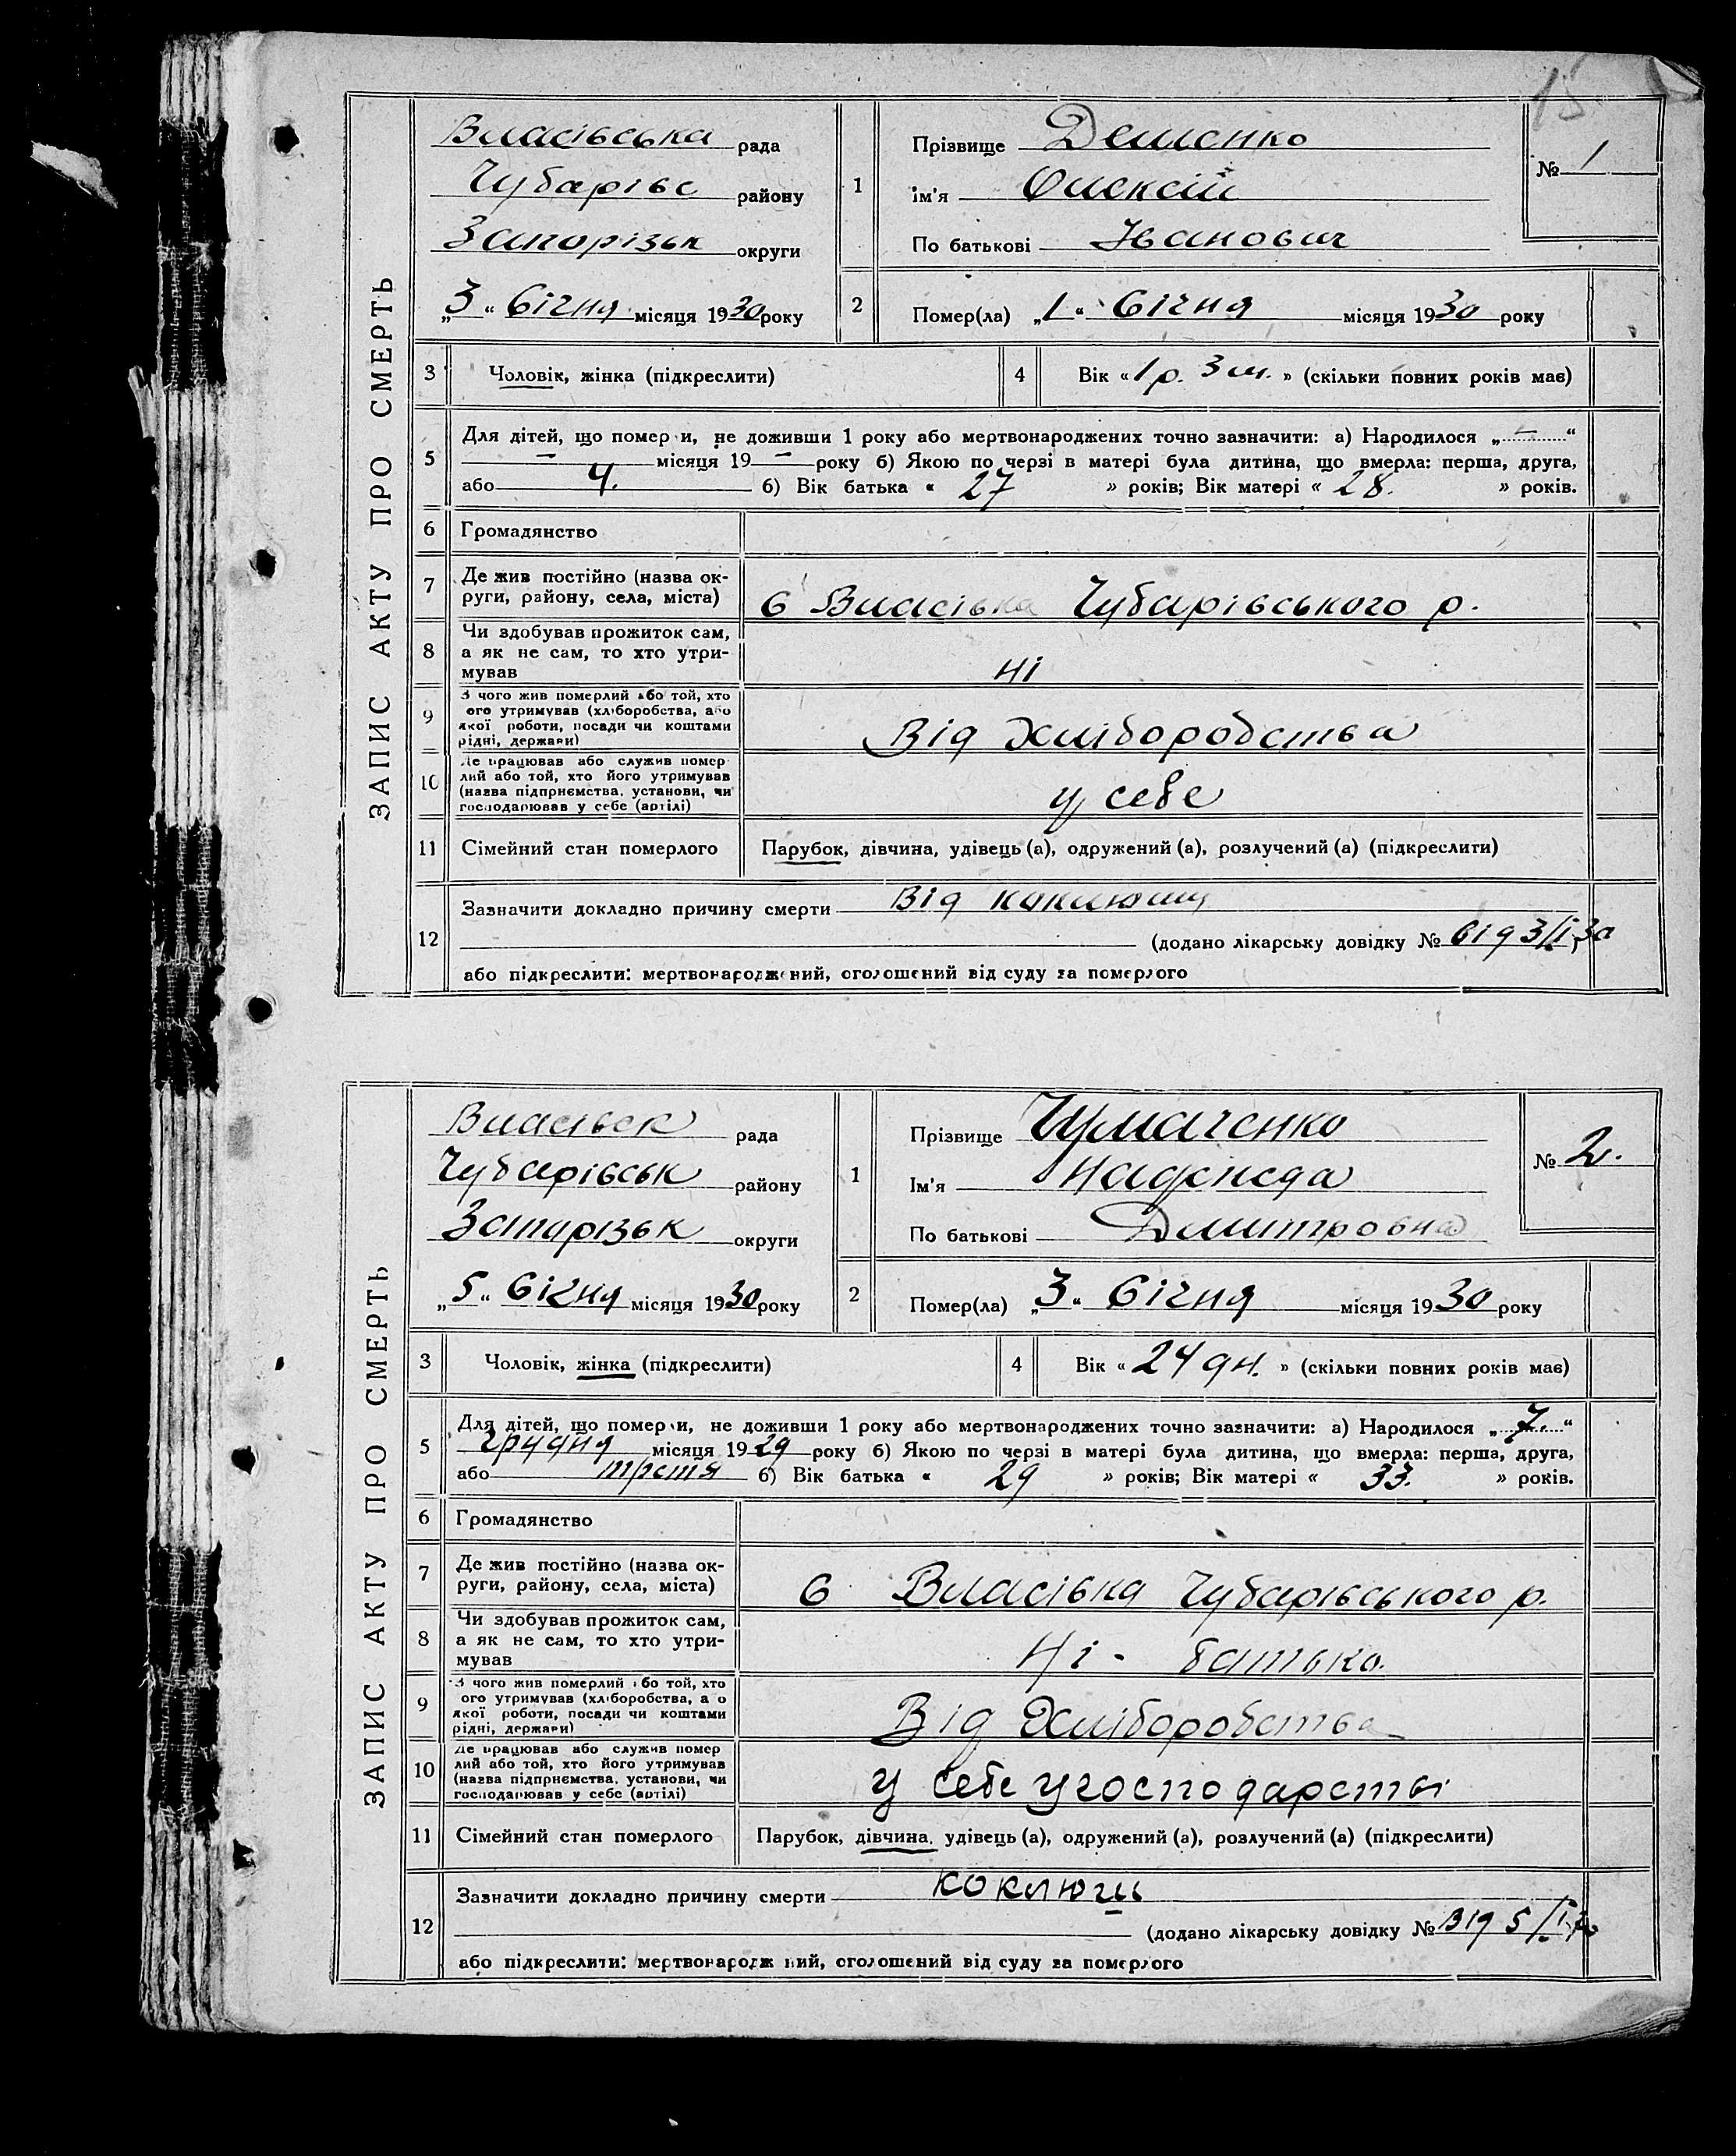 15
ЗАПИС АКТУ ПРО СМЕРТЬ
Власівська рада
Чубарівс району
Запорізьк округи
„3“ Січня місяця 1930 року
1 Прізвище Деменко
ім'я Олексій
По батькові Іванович
№ 1
2 Помер(ла) „1“ Січня місяця 1930 року
3 Чоловік, жінка (підкреслити)
4 Вік «1 р. 3 м.» (скільки повних років має)
5 Для дітей, що померли, не доживши 1 року або мертвонароджених точно зазначити: а) Народилося „ – “
– місяця 19 – року б) Якою по черзі в матері була дитина, що вмерла: перша, друга,
або 4. б) Вік батька « 27 » років; Вік матері « 28. » років.
6 Громадянство
7 Де жив постійно (назва ок-
руги, району, села, міста) С Власівка Чубарівського р.
8 Чи здобував прожиток сам,
а як не сам, то хто утри-
мував ні
9 З чого жив померлий або той, хто
ого утримував (хліборобства, або
якої роботи, посади чи коштами
рідні, держави) Від Хліборобства
10 Де працював або служив помер
лий або той, хто його утримував
(назва підприємства, установи, чи
господарював у себе (артілі) у себе
11 Сімейний стан померлого Парубок, дівчина, удівець (а), одружений (а), розлучений (а) (підкреслити)
12 Зазначити докладно причину смерти Від коклюшу
(додано лікарську довідку № від 3/I 30
або підкреслити: мертвонароджений, оголошений від суду за померлого
ЗАПИС АКТУ ПРО СМЕРТЬ
Власівськ рада
Чубарівськ району
Запорізьк округи
„5“ Січня місяця 1930 року
1 Прізвище Чумаченко
Ім'я Надежда
По батькові Дмитровна
№ 2.
2 Помер(ла) „3“ Січня місяця 1930 року
3 Чоловік, жінка (підкреслити)
4 Вік «24 дн.» (скільки повних років має)
5 Для дітей, що померли, не доживши 1 року або мертвонароджених точно зазначити: а) Народилося „7.“
грудня місяця 1929 року б) Якою по черзі в матері була дитина, що вмерла: перша, друга,
або третя б) Вік батька « 29 » років; Вік матері « 33. » років.
6 Громадянство
7 Де жив постійно (назва ок-
руги, району, села, міста) С Власівка Чубарівського р.
8 Чи здобував прожиток сам,
а як не сам, то хто утри-
мував Ні - батько.
9 З чого жив померлий або той, хто
ого утримував (хліборобства, або
якої роботи, посади чи коштами
рідні, держави) Від Хліборобства
10 Де працював або служив помер
лий або той, хто його утримував
(назва підприємства, установи, чи
господарював у себе (артілі) у себе у господарстві
11 Сімейний стан померлого Парубок, дівчина, удівець (а), одружений (а), розлучений (а) (підкреслити)
12 Зазначити докладно причину смерти коклюш
(додано лікарську довідку № Від 5/I 30
або підкреслити: мертвонароджений, оголошений від суду за померлого